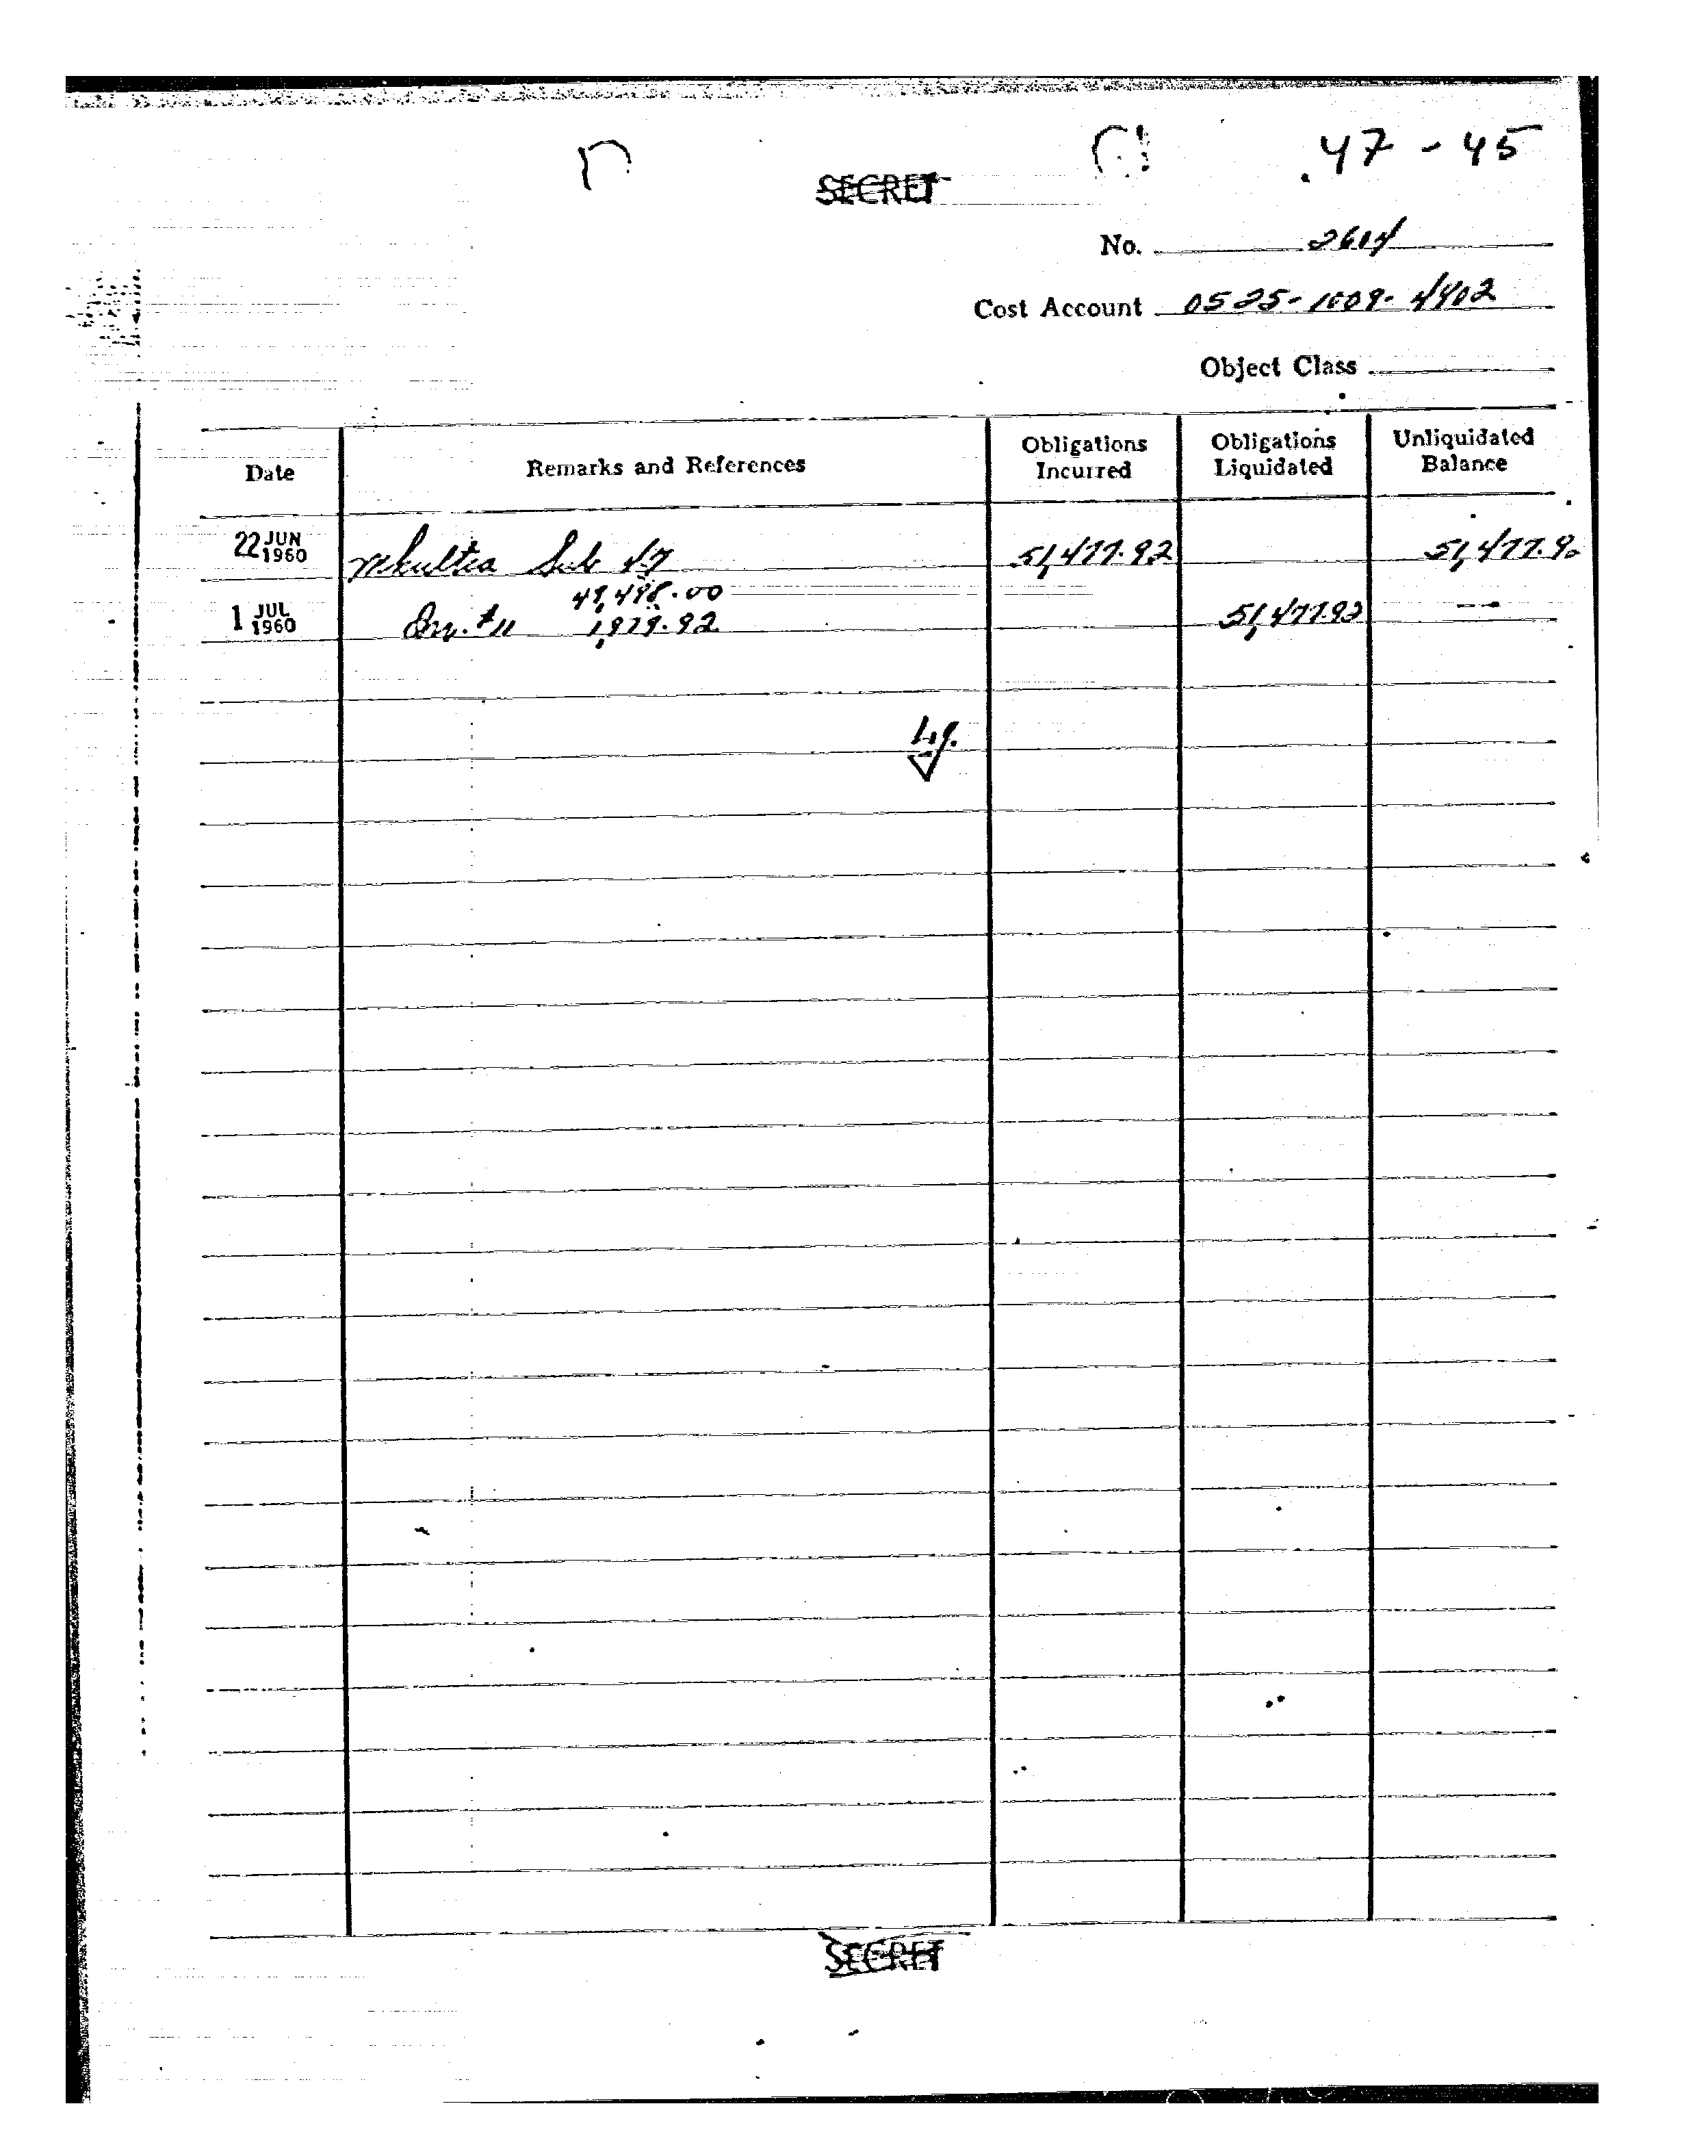 47-45
SECRET
No. 2614
Cost Account 0525-1009-4402
Object Class
Date Remarks and References Obligations Incurred Obligations Liquidated Unliquidated Balance
22 JUN 1960 Mkultra Sub 47 51,477.92 51,477.92
49,498.00
1 JUL 1960 Inv. #11 1,979.92 51,477.92 —
Liq.
SECRET